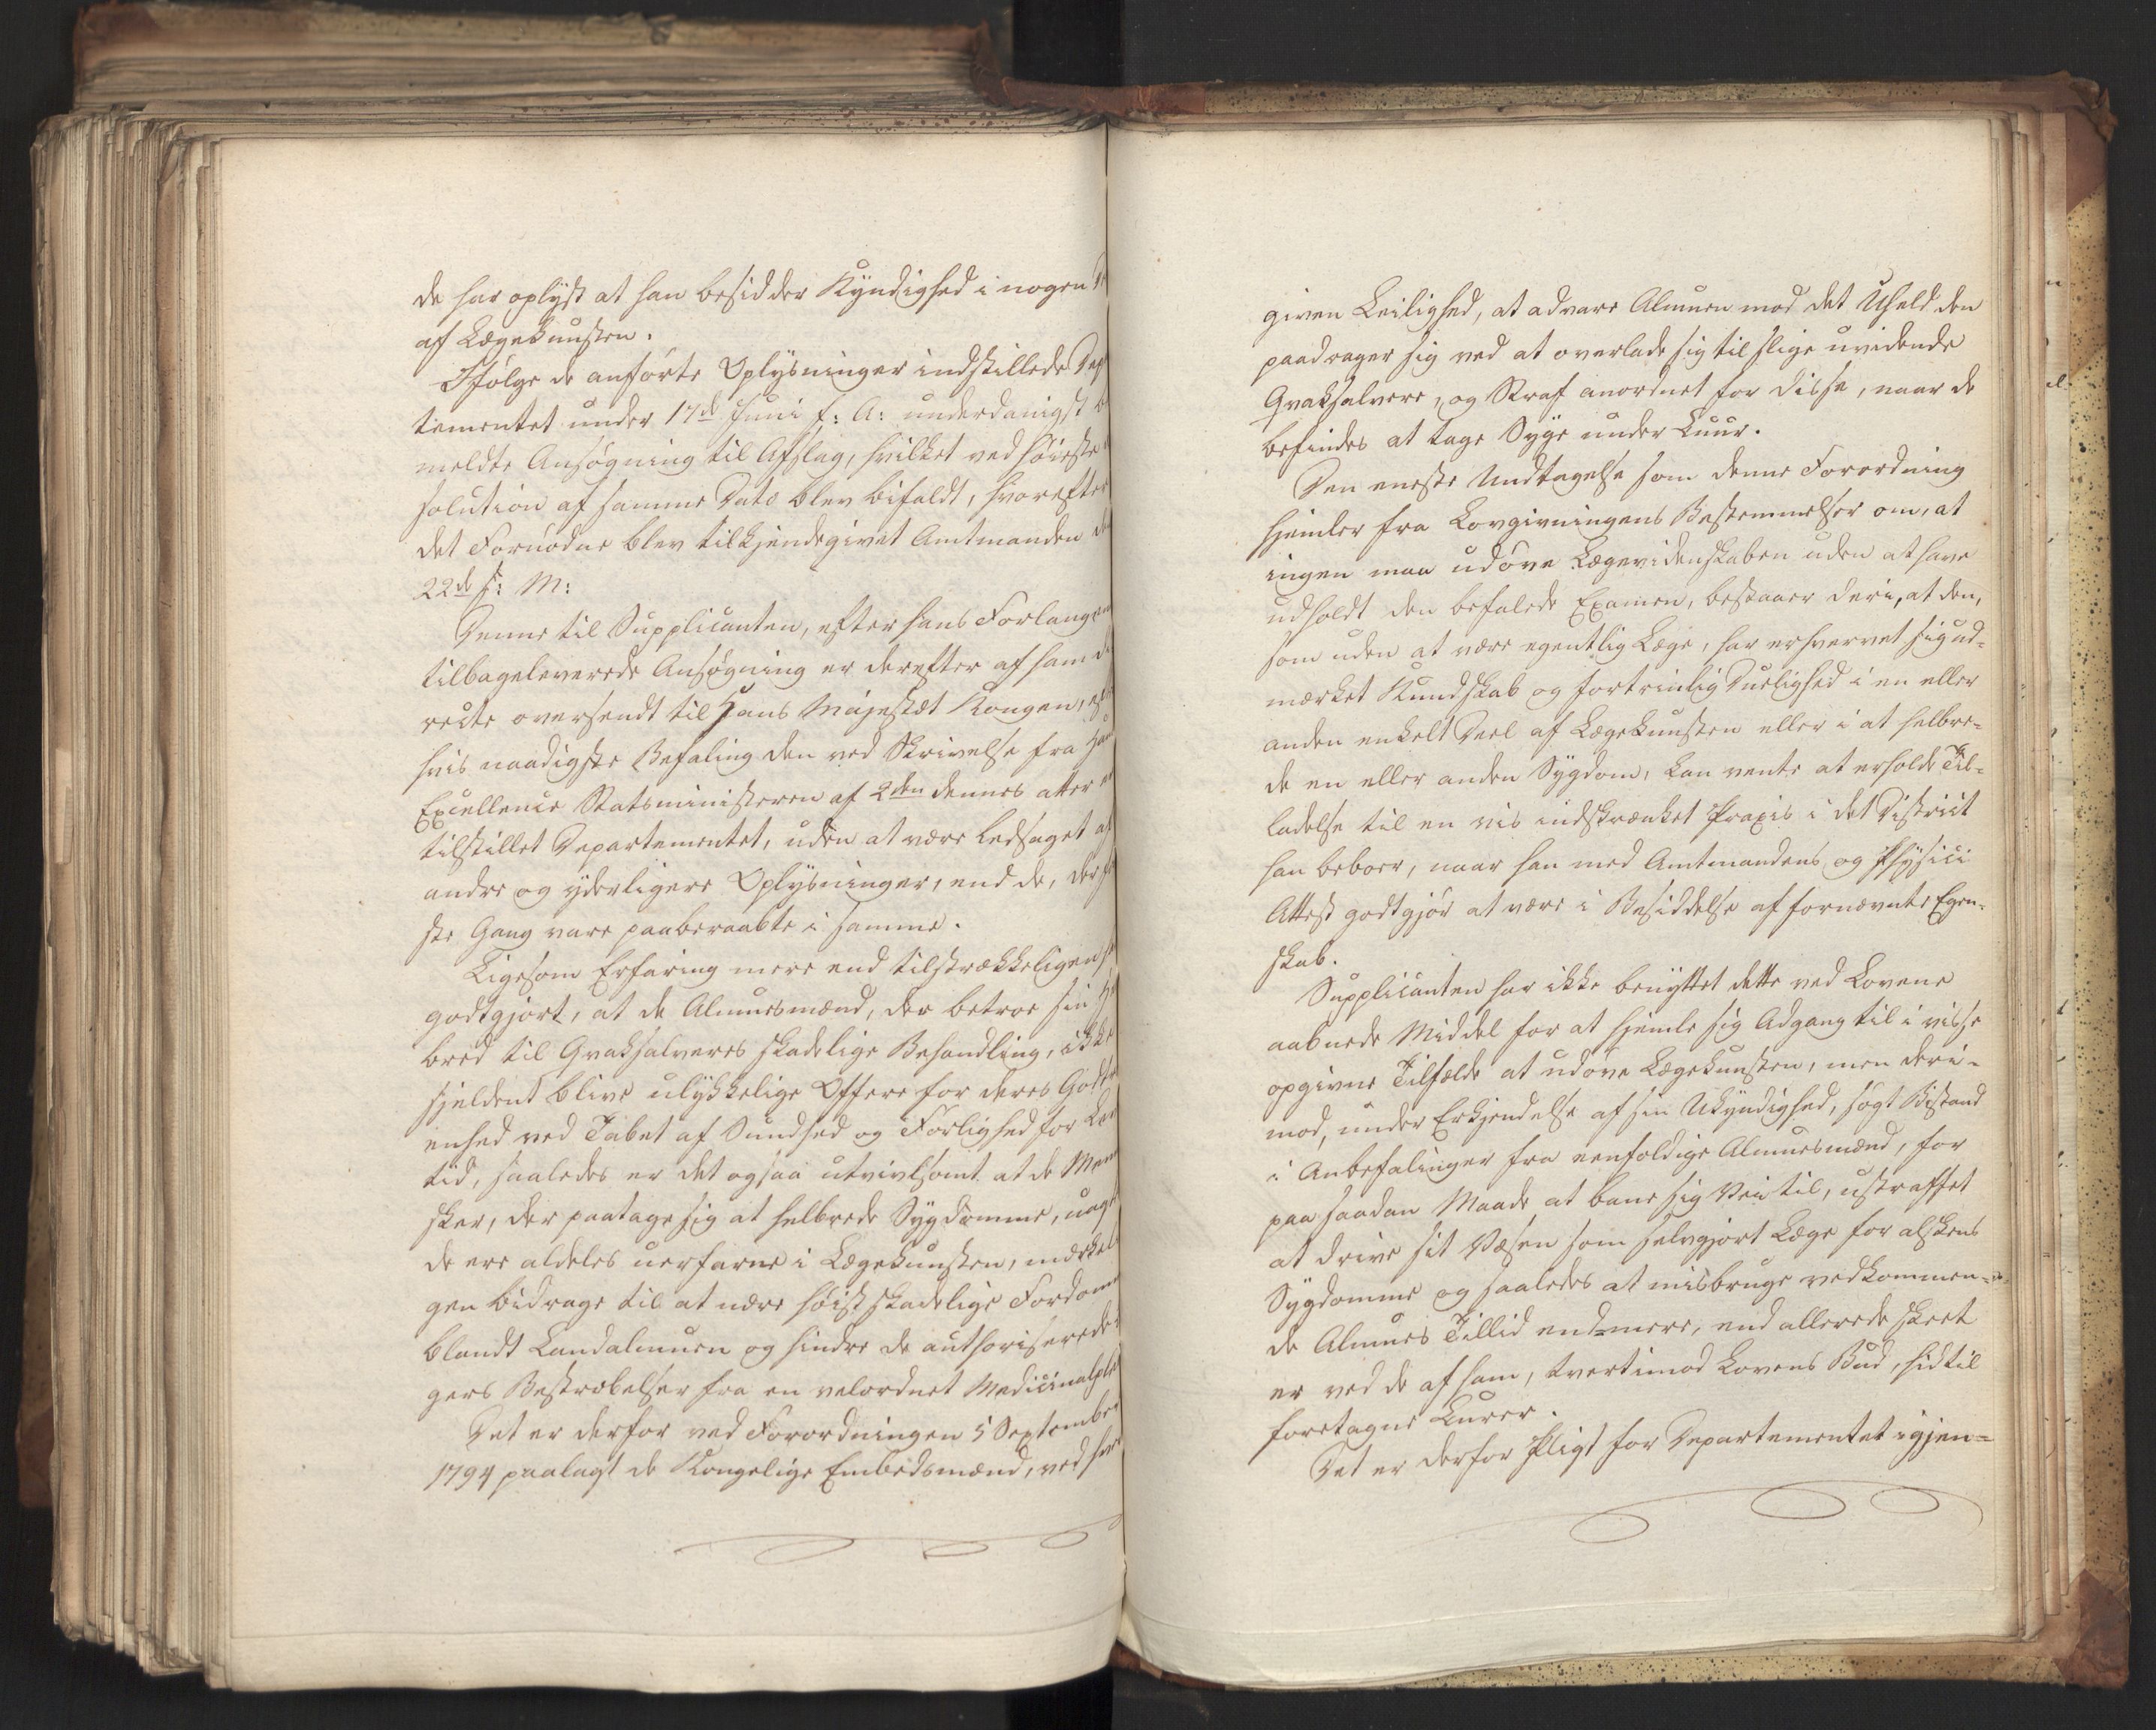 de har oplyst at han besidder Kyndighed i nogen
af Lægekunsten.
Ifølge de anførte Oplysninger indstillede Dep
tementet under 17de Juni f: A: underdanigst
meldte Ansøgning til Afslag, hvilket ved høieste
solution af samme Dato blev bifaldt, hvorefter
det Fornødne blev tilkjendegivet Amtmanden
22de s: M:
Denne til Supplicanten, efter hans Forlangen
tilbageleverede Ansøgning er derefter af ham di
recte oversendt til Hans Majestæt Kongen, ef
hvis naadigste Befaling den ved Skrivelse fra Hans
Excellence Statsministeren af 2den dennes atter er
tilstillet Departementet, uden at være ledsaget af
andre og yderligere Oplysninger, end de, der før
ste Gang vare paaberaabte i samme.
Ligesom Erfaring mere end tilstrækkeligen
godtgjort, at de Almuesmænd, der betroe sin Hel
bred til Qvaksalveres skadelige Behandling, ikke
sjeldent blive ulykkelige Offere for deres Godtro
enhed ved Tabet af Sundhed og Førlighed for Lev
tid, saaledes er det ogsaa utvivlsomt at de Menne
sker, der paatage sig at helbrede Sygdomme, uagt
de ere aldeles uerfarne i Lægekunsten, mærkeli
gen bidrage til at nære høist skadelige Fordomme
blandt Landalmuen og hindre de authoriserede
gers Bestræbelser fra en velordnet Medicinalple
Det er derfor ved Forordningen 5 September
1794 paalagt de Kongelige Embedsmænd, ved hver
given Leilighed, at advare Almuen mod det Uheld den
paadrager sig ved at overlade sig til slige uvidende
Qvaksalvere, og Straf anordnet for disse, naar de
befindes at tage Syge under Cuur.
Den eneste Undtagelse som denne Forordning
hjemler fra Lovgivningens Bestemmelser om, at
ingen maa udøve Lægevidenskaben uden at have
udholdt den befalede Examen, bestaaer deri, at den,
som uden at være egentlig Læge, har erhvervet sig ud-
mærket Kundskab og fortrinlig Duelighed i en eller
anden enkelt Deel af Lægekunsten eller i at helbre-
de en eller anden Sygdom, kan vente at erholde Til-
ladelse til en vis indskrænket Praxis i det District
han beboer, naar han med Amtmandens og Physici
Attest godtgjør at være i Besiddelse af fornævnte Egen-
skab.
Supplicanten har ikke benyttet dette ved Lovene
aabnede Middel for at hjemle sig Adgang til i visse
opgivne Tilfælde at udøve Lægekunsten, men deri-
mod, under Erkjendelse af sin Ukyndighed, søgt Bistand
i Anbefalinger fra eenfoldige Almuesmænd, for
paa saadan Maade at bane sig Vei til, ustraffet
at drive sit Væsen som selvgjort Læge for alskens
Sygdomme og saaledes at misbruge vedkommen-
de Almues Tillid end mere, end allerede skeet
er ved de af ham, tvertimod Lovens Bud, hidtil
foretagne Curer.
Det er derfor Pligt for Departementet igjen=